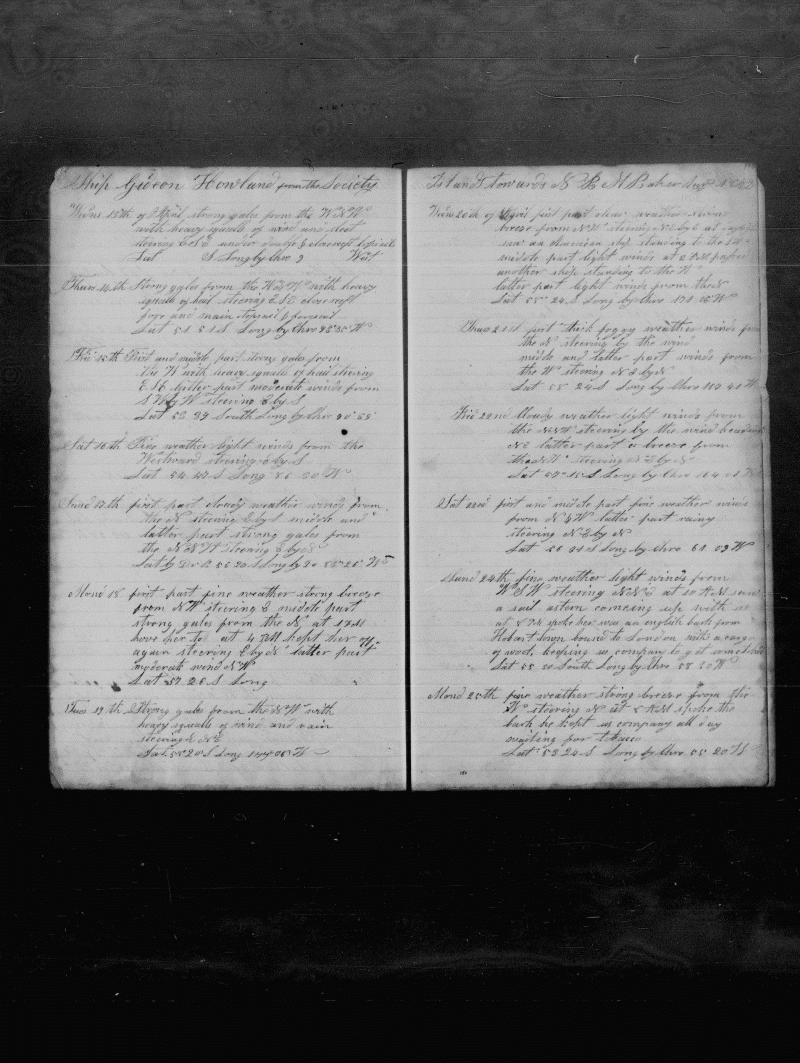 Ship Gideon Howland from the Society
Wedns 13th of April strong gales from the W N W
with heavy squalls of wind and sleet
steering E S E under close reef topsails
Lat S Long by Chro West
Thurs 14th Strong gales from the W N W with heavy
squalls of hail steering E S E close reeft
fore and main topsail & foresail
Lat 51 51 S Long by Chro W
Frid 15th First and middle part strong gales from
the W with heavy squalls of hail steering
E S E latter part moderate winds from
S W by W steering E by S
Lat 53 39 South Long by Chro
Sat 16th Fine weather light winds from the
Westward steering E by S
Lat 54 47 S Long W
Sund 17th first part cloudy weather winds from
the N steering E by S middle and
latter part strong gales from
the N N W steering E by S
Lat by D R 56 20 S Long by W
Mond 18 first part fine weather strong breeze
from N W steering E middle part
strong gales from the N at 1 P M
hove her to at 4 P M kept her off
again steering E by N latter part
moderate wind N W
Lat 57 26 S Long
Tues 19th Strong gales from the N W with
heavy squalls of wind and rain
steering N E
Lat 58 20 S Long W
Islands towards N B M Baker
Wedns 20th of April first part clear weather strong
breeze from N W steering N E by E at
saw an American ship standing to the
middle part light winds at 2 P M passed
another ship standing to the W
latter part light winds from the N
Lat 55 24 S Long by Chro W
Thurs 21st first part thick foggy weather winds from
the N steering by the wind
middle and latter part winds from
the W steering N E by N
Lat 58 24 S Long by Chro W
Frid 22nd Cloudy weather light winds from
the N N W steering by the wind heading
N E latter part a breeze from
the steering N E by N
Lat 57 15 S Long by Chro W
Sat 23rd first and middle part fine weather winds
from N W latter part rainy
steering N E by N
Lat 56 31 S Long by Chro 61 03 W
Sund 24th fine weather light winds from
W S W steering N N E at 10 A M saw
a sail astern comeing up with us
at P M spoke her was an english bark from
Hobart town bound to London with a cargo
of wool keeping us company to get some
Lat 55 20 South Long by Chro 58 20 W
Mond 25th fine weather strong breeze from the
W steering N at A M spoke the
bark he kept us company all day
waiting for tobacco
Lat 53 24 S Long by Chro 55 20 W